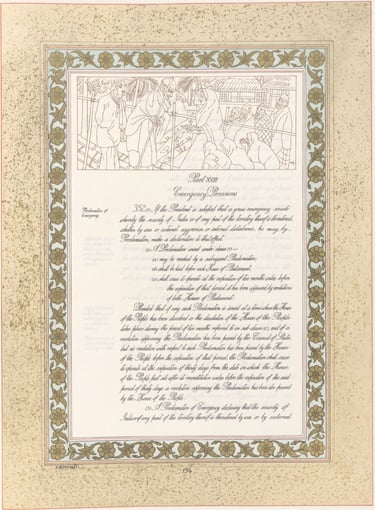 Part XVIII
Emergency Provisions
Proclamation of
Emergency
352. (1) If the President is satisfied that a grave emergency exists
whereby the security of India or of any part of the territory thereof is threatened,
whether by war or external aggression or internal disturbance, he may, by
Proclamation, make a declaration to that effect.
(2) A Proclamation issued under clause (1)—
(a) may be revoked by a subsequent Proclamation;
(b) shall be laid before each House of Parliament;
(c) shall cease to operate at the expiration of two months unless before
the expiration of that period it has been approved by resolutions
of both Houses of Parliament:
Provided that if any such Proclamation is issued at a time when the House
of the People has been dissolved or the dissolution of the House of the People
takes place during the period of two months referred to in sub-clause (c), and if a
resolution approving the Proclamation has been passed by the Council of States,
but no resolution with respect to such Proclamation has been passed by the House
of the People before the expiration of that period, the Proclamation shall cease
to operate at the expiration of thirty days from the date on which the House
of the People first sits after its reconstitution unless before the expiration of the said
period of thirty days a resolution approving the Proclamation has been also passed
by the House of the People.
(3) A Proclamation of Emergency declaring that the security of
India or of any part of the territory thereof is threatened by war or by external
154